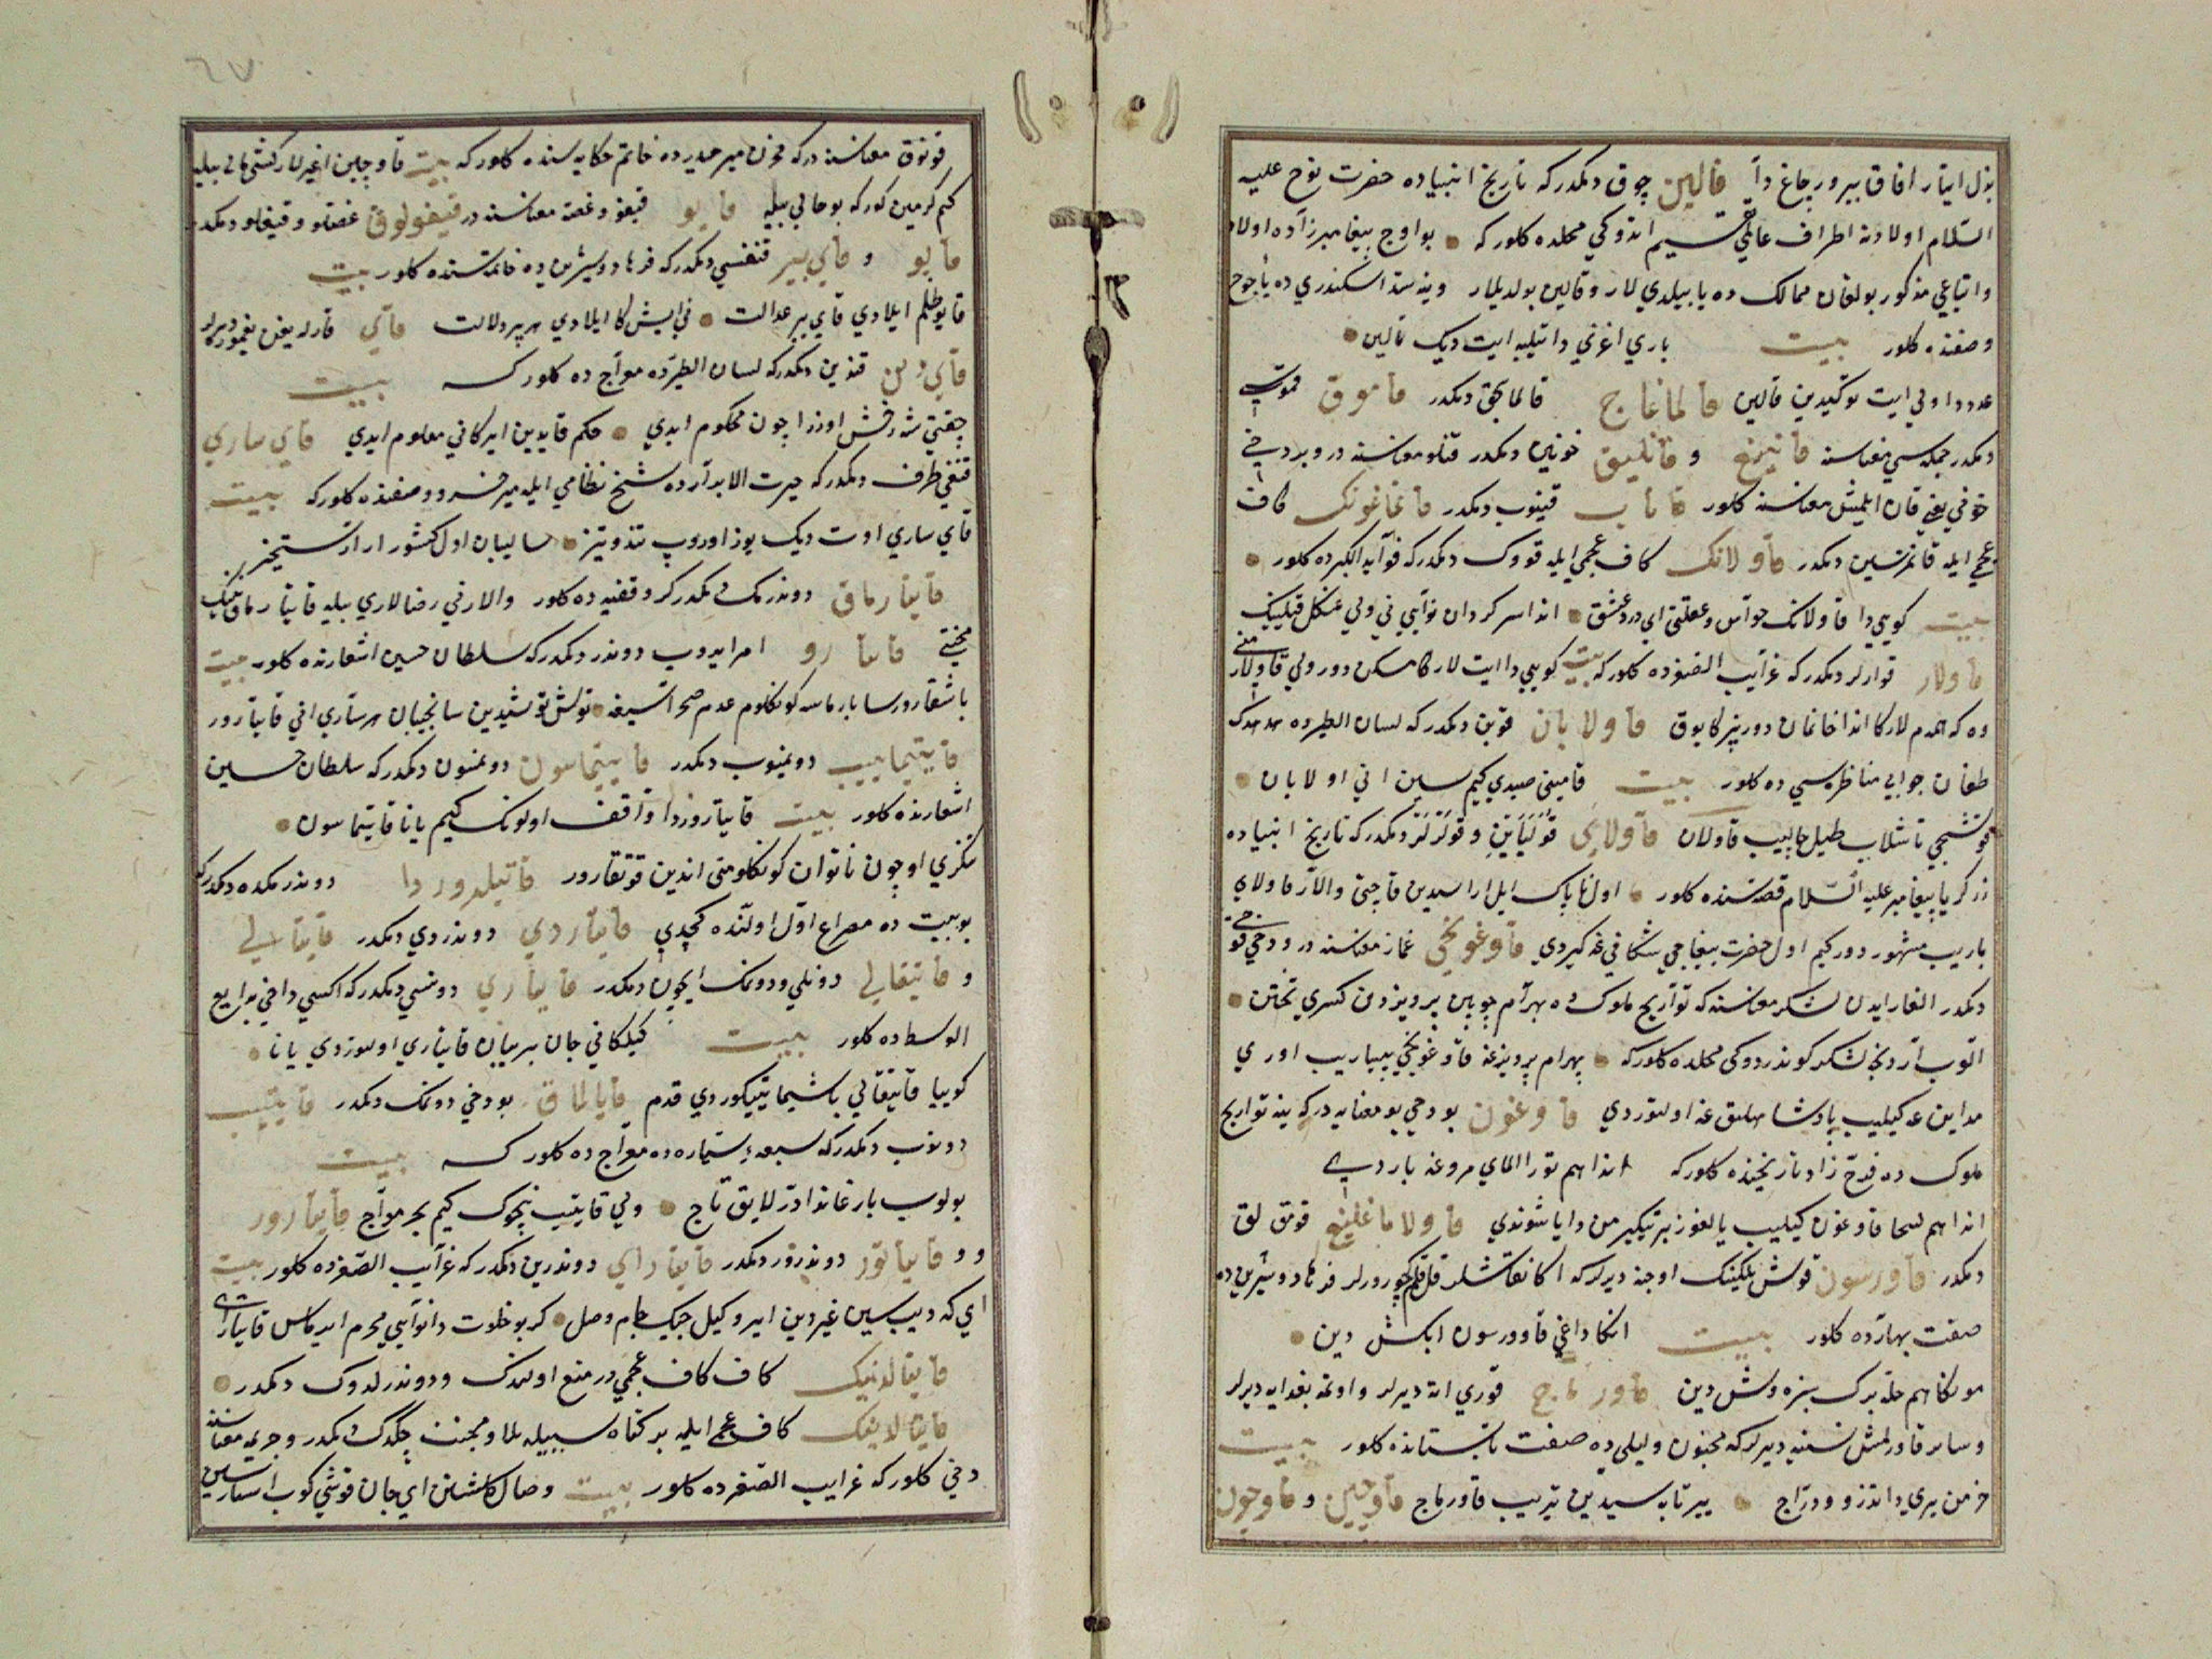 بذل ایتار افاق بیرور چاغ دا قالین چوق دیمکدر که تاریخ انبیاده حضرت نوح علیه
السلام اولادنه اطراف عالمی تقسیم اتدوکی محلده کلور که بو اوچ پیغامبر زاده اولاد
واتباعی مذکور بولغان ممالک ده یاییلدی لار و قالین بولدیلار وینه سد اسکندری ده یأجوج
وصفنده کلور بیت باری اغزی دا تیلبه ایت دیک نالین
عدددا ولی ایت توکیدین قالین قالماغاج قالمایجق دیمکدر قاموق قموسی
دیمکدر جمله سی معناسنه قانیغ و قانلیق خونین دیمکدر قانلو معناسنه در و بر دخی
خونی یعنی قان ایلمش معناسنه کلور قاناب قینوب دیمکدر قانماغونک کاف
عجمی ایله قانمزسین دیمکدر قاولانک کاف عجمی ایله قووک دیمکدر که فوآید الکبرده کلور
بیت کویی دا قاولانک حواس وعقلنی ای درد عشق اندا سرکردان نوایی نی ولی عنکل قیلینک
قاولار قوارلر دیمکدر که غرآیب الصغرده کلور که بیت کویی دا ایت لارکا مسکن دور ولی قاولار منی
وه که همدم لارکا اندا خانمان دور بیزکا یوق قاولابان قوین دیمکدر که لسان الطیرده هدهدک
طغان جوابی مناظره سی ده کلور بیت قامینی صیدی کیم سین انی اولابان
قوشچی تاشلاب طبل چالیب قاولان قاولای قولیاین و قولرلر دیمکدر که تاریخ انبیاده
زکریا پیغامبر علیه السلام قصه سنده کلور اول ناپاک ایل اراسیدین قاچتی والار قاولای
باریب مشهور دور کیم اول حضرت ییغاجی شکافی غه کیردی قاوغونچی غماز معناسنه در و دخی قو
دیمکدر الغار ایدن لشکر معناسنه که توآریخ ملوک ده بهرآم چوبین پرویزدن کسری تختن
الوب آردنجه لشکر کوندردوکی محلده کلور که بهرام پرویزغه قاوغونچی ییباریب اوزی
مداین غه کیلیب پادشاهلیق غه اولتوردی قاوغون بو دخی بو معنایه در که ینه تواریخ
ملوک ده فرخ زاد تاریخنده کلور که اندا هم تورا الماي مروغه باردی
اندا هم قاوغون کیلیب یالغوز بیر تیکیرمن دا یاشوندی قاولاماغلیغ قومق لق
دیمکدر قاورسون قوش یلکینک اوجنه دیرلر که اکا نقاشلر قل قلم کچورورلر فرهاد وشیرین ده
صفت بهارده کلور بیت انکا داغی قاوورسون ایکش دین
مونکا هم حله برک سبزه وش دین قاورماج قوری اته دیرلر و اوتمه بغدایه دیرلر
وسایر قاورلمش نسنه دیرلر که مجنون ولیلی ده صفت تابستانده کلور بیت
خرمن یری دا تذرو و دراج ییر تابه سیدین تیریب قاورماج قاوچین و قاوچون
قونوق معناسنه در که مخزن میرحیدرده خاتم حکایه سنده کلور که بیت قاوچین اغیرلار کشی مالی بیله
کیم کرمین کورکه بو حالی بیله قایو قیغو و غصه معناسنه در قیغولوق غصه لو و قیغلو دیمکدر
قایو و قای بیر قنغسی دیمکدر که فرهاد وشیرین ده خاتمه سنده کلور بیت
قایو ظلم ایلادی قای بیر عدالت نی ایش کا ایلادی هر بیر دلالت قای قارله یغن یغموره دیرلر
قای دین قندین دیمکدر که لسان الطیرده معراج ده کلور که بیت
چقتی شه رخش اوزرا چون محکوم ایدی حکم قایدین ایرکانی معلوم ایدی قای ساری
قنغی طرف دیمکدر که حیرت الابرآرده شیخ نظامی ایله میر خسرو وصفنده کلور که بیت
قای ساری اوت دیک یوز اوروب تند و تیز سالیبان اول کشور ارا رستخیز
قایتارماق دوندرمک دیمکدر که وقفیه ده کلور والارنی رضالاری بیله قایتارماق نینک
قایتارو امر ایدوب دوندر دیمکدر که سلطان حسین اشعارنده کلور بیت
باشقارورسا بارماس کونکلوم عدم صحراسیغه تولش توشیدین سانچیبان هر ساری انی قایتارور
قایتیماییب دونمیوب دیمکدر قایتماسون دونمسون دیمکدر که سلطان حسین
اشعارنده کلور بیت قایتاروردا واقف اولونک کیم یانا قایتماسون
تنکری اوچون ناتوان کونکلومنی اندین قوتقارور قاتیلدوردا دوندرمکده دیمکدر که
بو بیت ده مصراع اول اولنده کچدی قایتاردی دوندردی دیمکدر قایتالی
و قایتقالی دونلی و دونمک ایچون دیمکدر قایتاری دونسی دیمکدر که اکسی داخی بدایع
الوسطده کلور بیت کیلکانی جان بیریبان قایتاری اولتوردی یانا
کوییا قایتقالی باشیما یتیکوردی قدم قایالماق بو دخی دونمک دیمکدر قایتیب
دونوب دیمکدر که سبعه سیاره ده معراج ده کلور که بیت
بولوب بارغاندا در لایق تاج ولی قایتیب نچوک کیم بحر مواج قایتارور
و و قایتاتور دوندرور دیمکدر قایتارای دوندرین دیمکدر که غرآیب الصغرده کلور بیت
ای که دیب سین غیردین ایروکیل چیک جام وصل که بو خلوت دا نوایی محرم ایرماس قایتارای
قایتالدینک کاف کاف عجمی در منع اولندک و دوندرلدوک دیمکدر
قایتالانینک کاف عجمی ایله بر کناه سببیله بلا و محنت چکدک دیمکدر و جریمه معناسنه
دخی کلور که غرایب الصغرده کلور بیت وصال کلشنی ای جان قوشی کوب استارسین